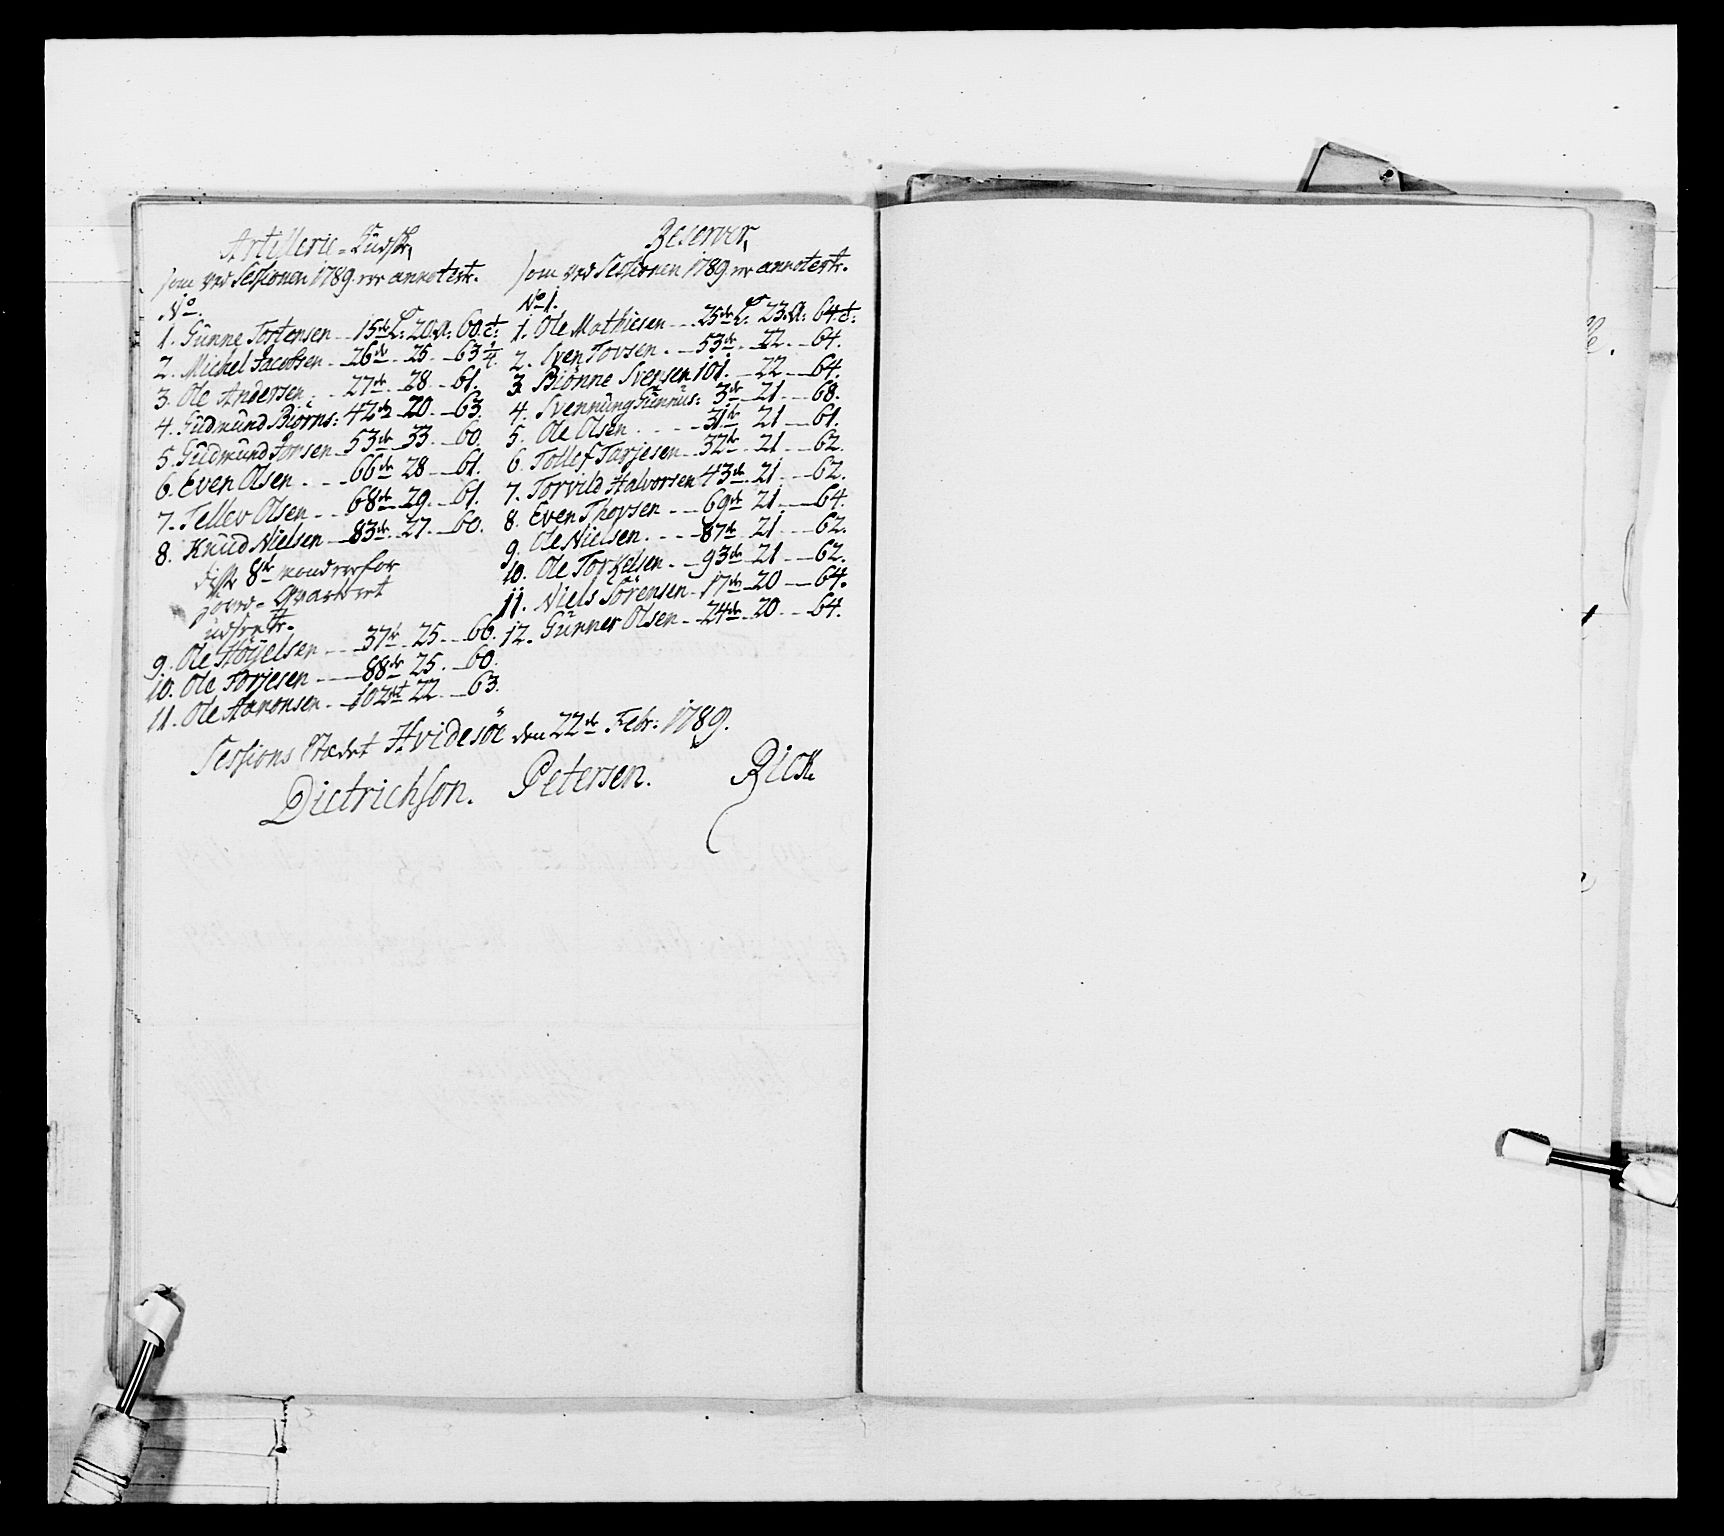 Artillerie-Kudske,
som ved Sessionen 1789 er annoterte.
No.
1. Gunne Tortensen 15de L: 20 A: 60 t:
2. Michel Jacobsen 26de 25 63 1/4
3. Ole Andersen 27de 28 61.
4. Gudmund Biörns: 42de 20 63.
5. Gudmund Jonsen 53de 33 60.
6. Even Olsen 66de 28 61.
7. Tellev Olsen 68de 29 61.
8. Knud Nielsen 83de 27 60.
disse 8te
udsente.
9. Ole Höyelsen 37te 25 66.
10. Ole Torjesen 88de 25 60.
11. Ole Aanonsen 102det 22 63.
Reserver,
som ved Sessionen 1789 er annoterte.
No 1.
1. Ole Mathiesen 25de L: 23 A: 64 t:
2. Sven Tovsen 53de 22 64.
3. Biönne Svensen 101. 22 64.
4. Svennung Gunnus: 3de 21 68.
5. Ole Olsen 31te 21 61.
6. Tollef Tarjesen 32te 21 62.
7. Torvild Halvorsen 43de 21 62.
8. Even Thovsen 69de 21 64.
9. Ole Nielsen 87de 21 62.
10. Ole Torkelsen 93de 21 62.
11. Niels Sörensen 17de 20 64.
12. Gunner Olsen 24de 20 64.
Sessions Stædet Hvidesöe den 22de Febr: 1789.
Dietrichson. Petersen. Rick